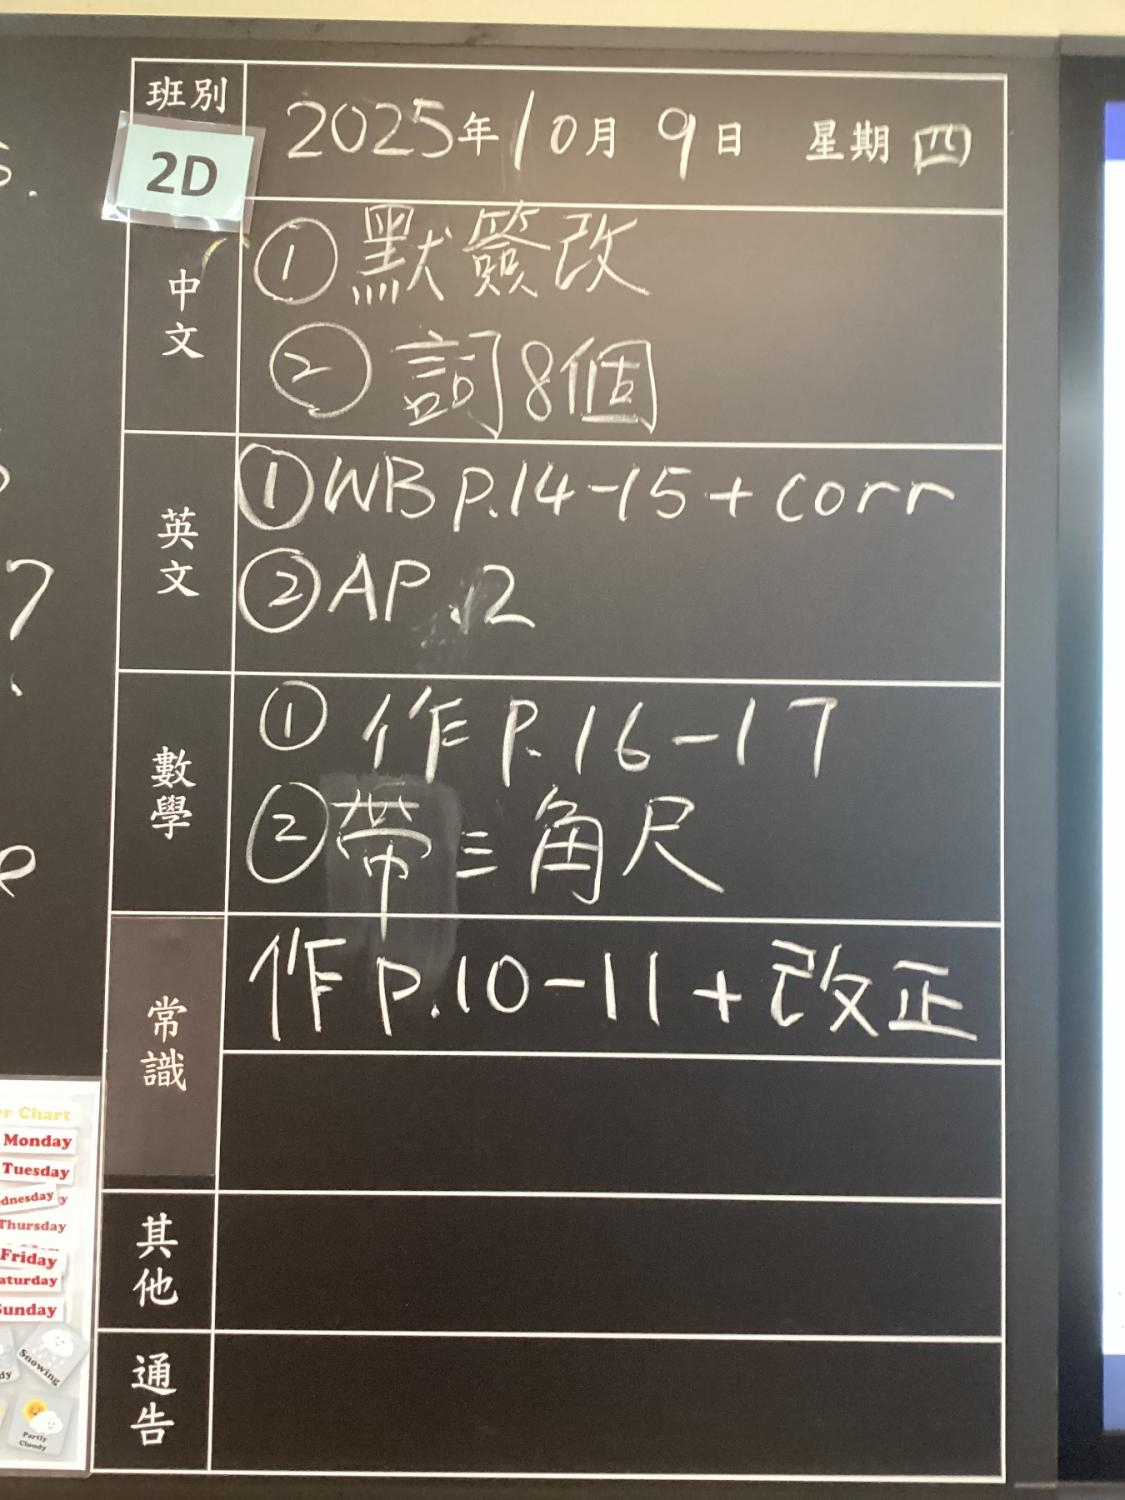 班別
2D
2025年10月9日 星期四
中文
①默簽改
②詞8個
英文
①WB p.14-15+corr
②AP.2
數學
①作P.16-17
②帶三角尺
常識
作p.10-11+改正
其他
通告
Chart
Monday
Tuesday
Thursday
Friday
Sunday
Snowing
Partly
Cloudy